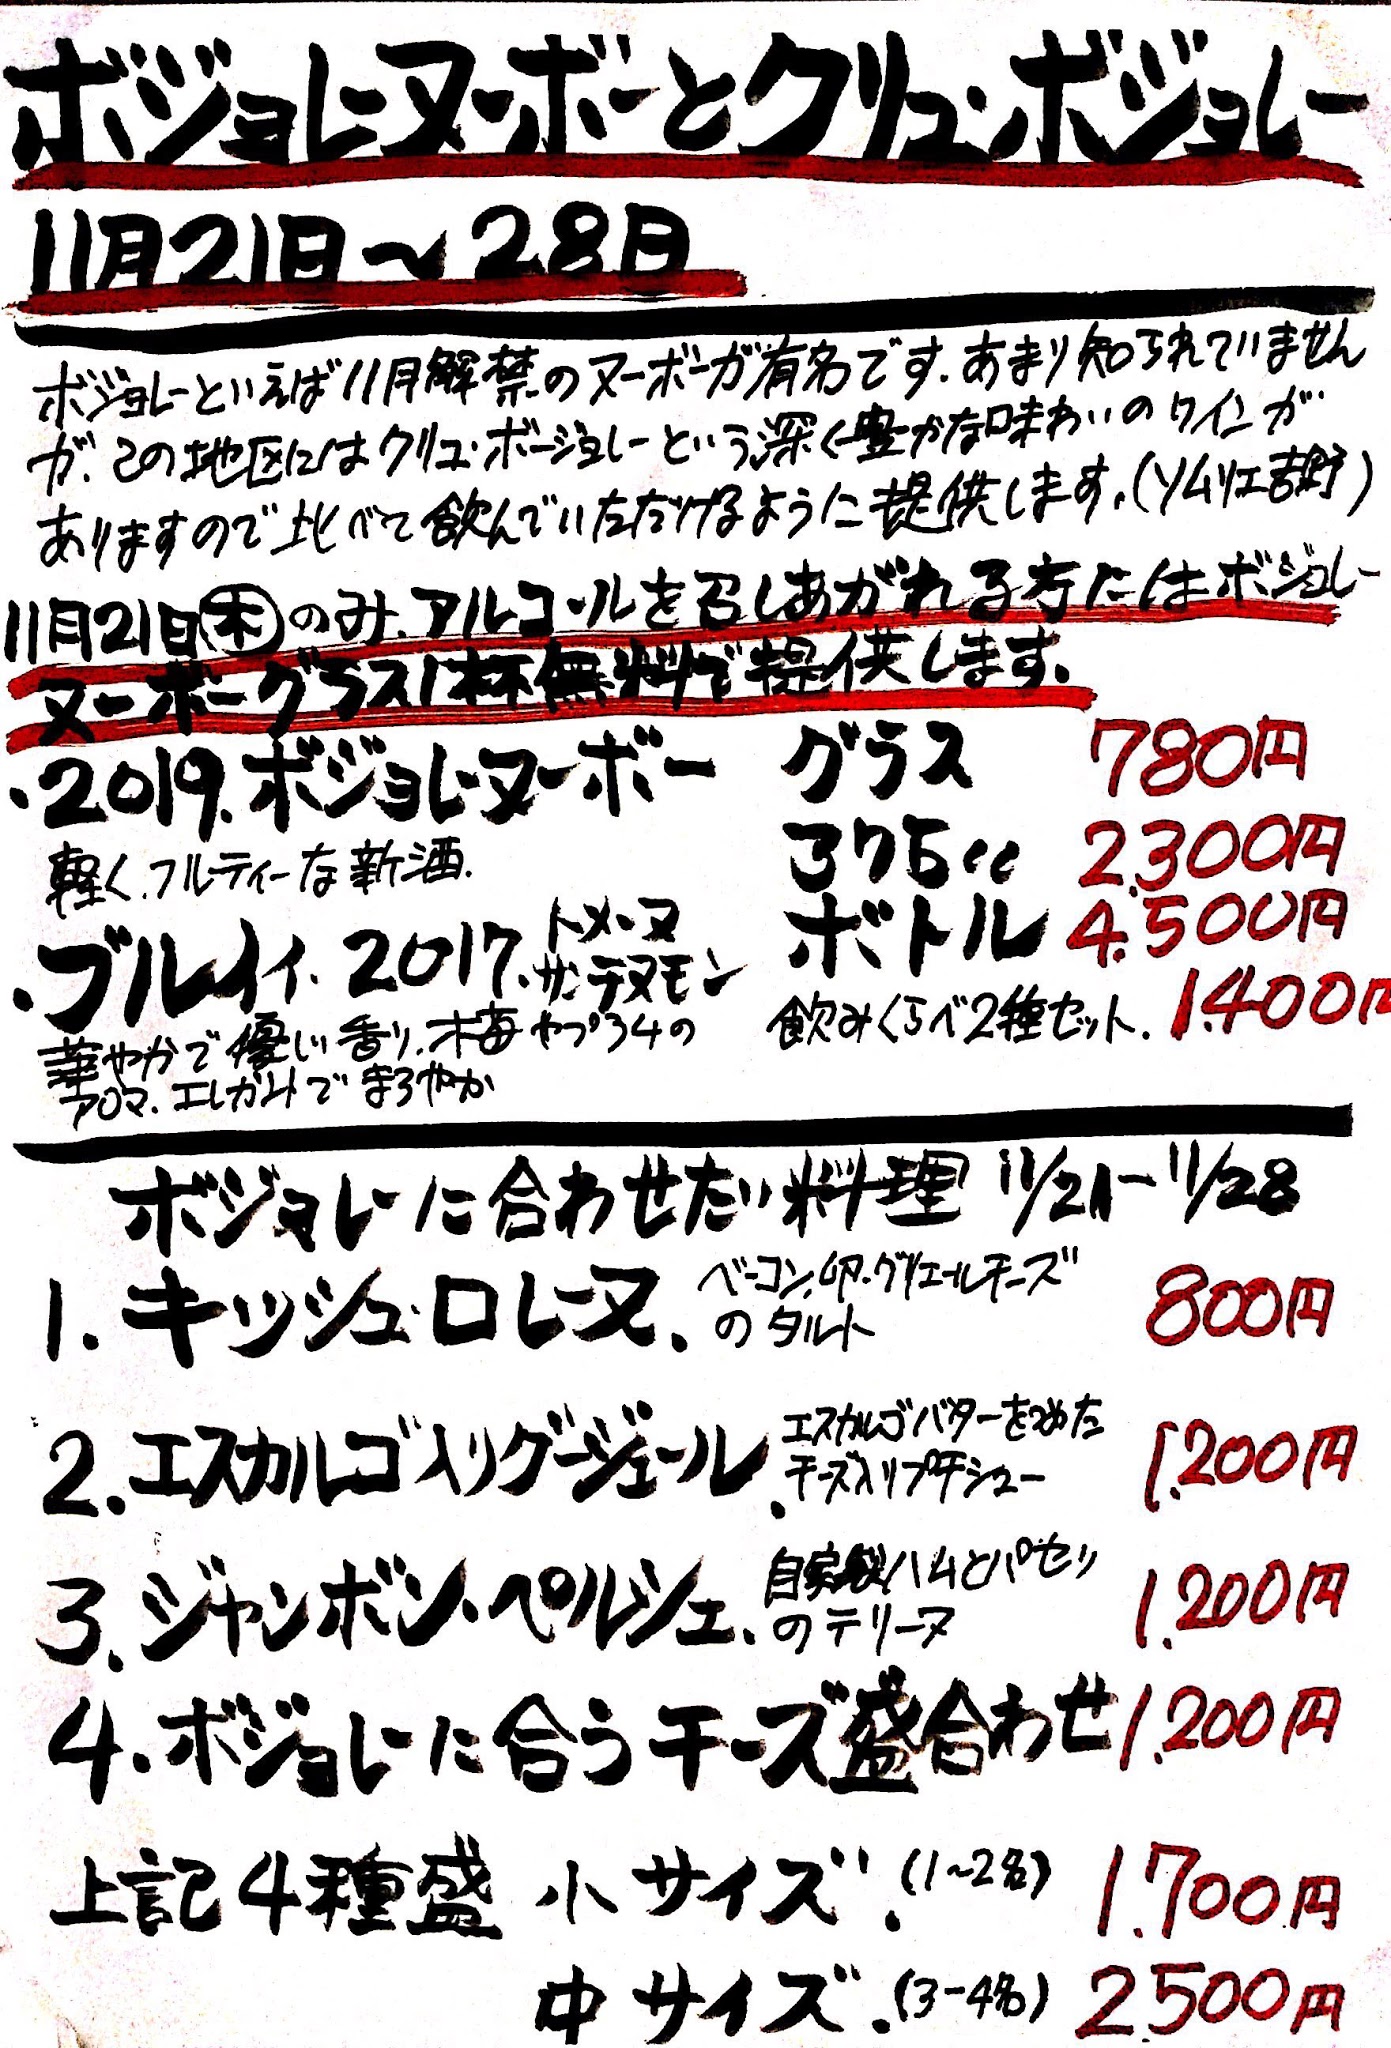 ボジョレーヌーボーとクリュ・ボジョレー
11月21日〜28日
ボジョレーといえば11月解禁のヌーボーが有名です。あまり知られていません
が、この地区にはクリュ・ボージョレーという、深く豊かな味わいのワインが
ありますので比べて飲んでいただけるように提供します。(ソムリエ吉野)
11月21日(木)のみ、アルコールを召しあがれる方にはボジョレー
ヌーボーグラス1杯無料で提供します。
・2019.ボジョレーヌーボー グラス 780円
軽く、フルーティーな新酒。 375cc 2.300円
・ブルイィ.2017. トメーヌ サン・テヌモン ボトル 4.500円
華やかで優しい香り、木苺やプラムの 飲みくらべ2種セット. 1.400円
アロマ、エレガントでまろやか
ボジョレーに合わせたい料理 11/21〜11/28
1.キッシュ・ロレーヌ. ベーコン、卵・グリエールチーズ 800円
のタルト
2.エスカルゴ入りグージェール. エスカルゴバターを詰めた 1.200円
チーズ入りプチシュー
3.ジャンボン・ペルシェ. 自家製ハムとパセリ 1.200円
のテリーヌ
4.ボジョレーに合うチーズ盛合わせ 1.200円
上記4種盛 小サイズ.(1~2名) 1.700円
中サイズ.(3-4名) 2.500円